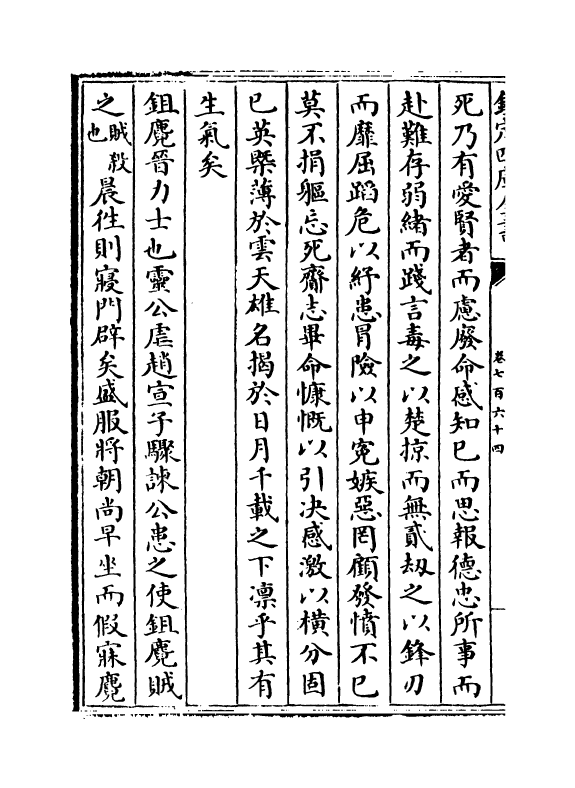 欽定四庫全書
卷七百六十四
死乃有愛賢者而慮廢命感知已而思報德忠所事而
赴難存弱緒而踐言毒之以楚掠而無貳刼之以鋒刃
而靡屈蹈危以紓患冒險以申寃嫉惡罔顧發憤不已
莫不捐軀忘死齎志畢命慷慨以引决感激以橫分固
已英槩薄於雲天雄名揭於日月千載之下凛乎其有
生氣矣
鉏麑晉力士也靈公虐趙宣子驟諫公患之使鉏麑賊
之賊殺也晨徃則寢門辟矣盛服將朝尚早坐而假寐麑